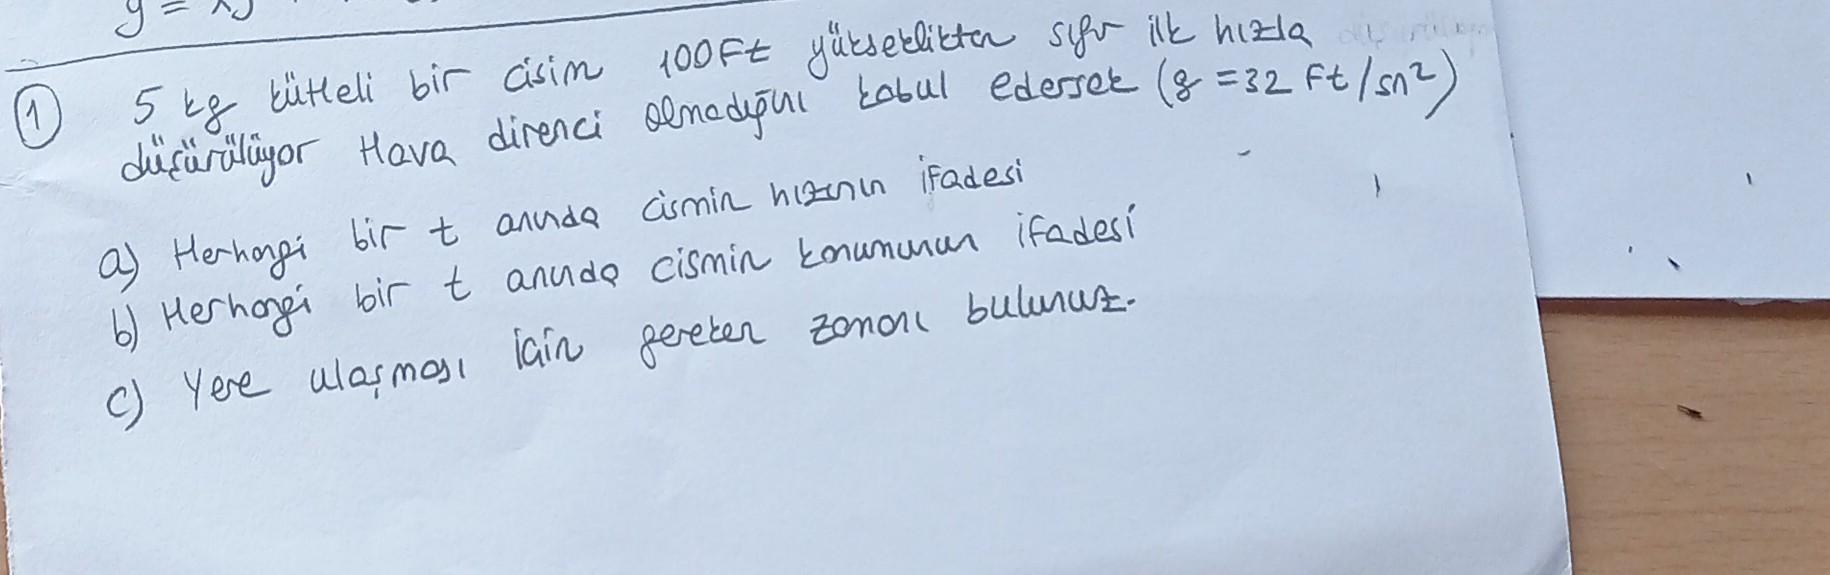 y = xy
① 5 kg kütleli bir cisim 100Ft yükseklikten sıfır ilk hızla
düşürülüyor Hava direnci olmadığını kabul edersek (g = 32 Ft/sn²)
a) Herhangi bir t anında cismin hızının ifadesi
b) Herhangi bir t anında cismin konumunun ifadesi
c) Yere ulaşması için gereken zamanı bulunuz.